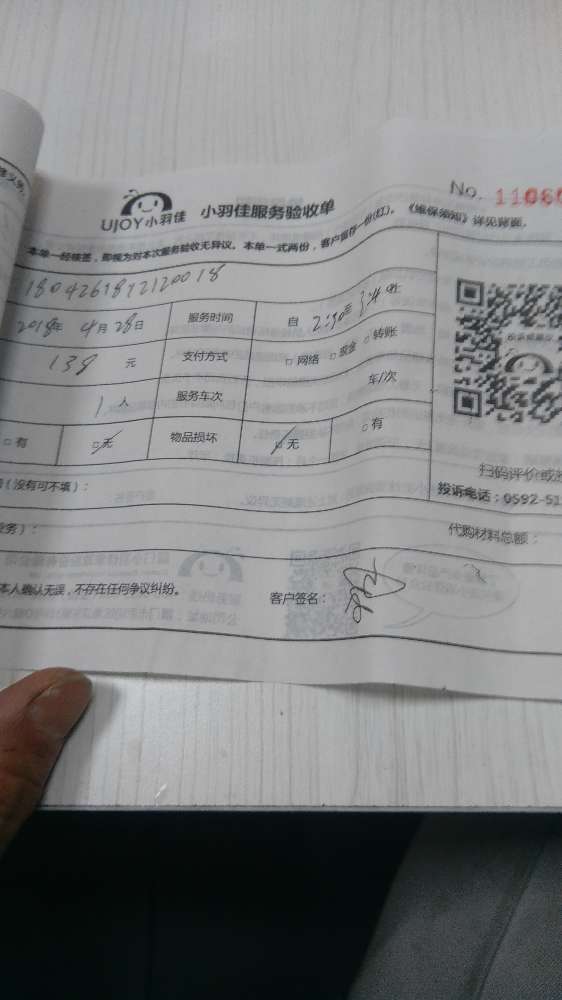 No. 11060
UJOY小羽佳 小羽佳服务验收单
本单一经核签，即视为对本次服务验收无异议。本单一式两份，客户留存一份(红)。《维保须知》详见背面。
1804261812120018
2018年 4月28日 服务时间 自 2:30至
139 元 支付方式 □网络 □现金 □转账
1 人 服务车次 车/次
□有 □无 物品损坏 □无 □有
(没有可不填)：
扫码评价或
投诉电话：0592-51
务)： 代购材料总额：
本人确认无误，不存在任何争议纠纷。 客户签名：